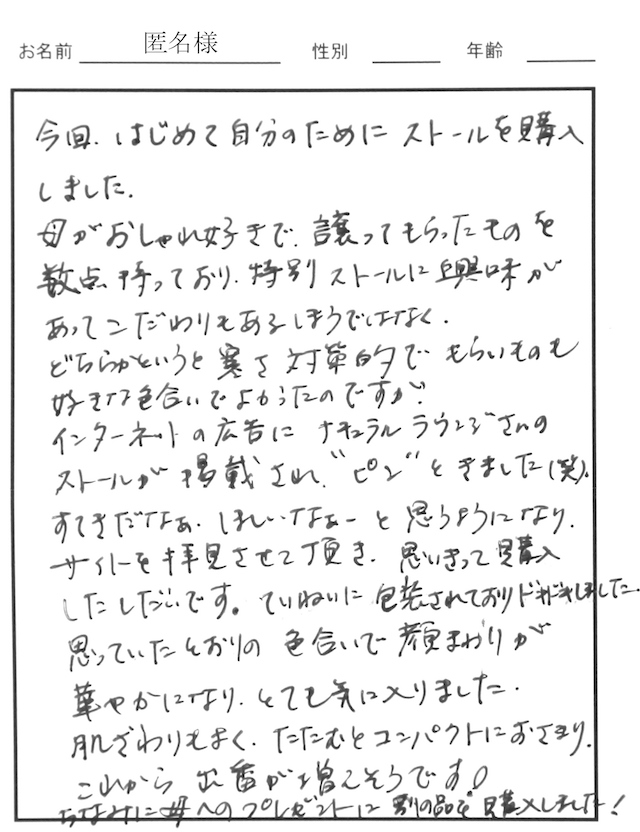 お名前 匿名様 性別 年齢
今回、はじめて自分のためにストールを購入
しました。
母がおしゃれ好きで、譲ってもらったものを
数点持っており、特別ストールに興味が
あってこだわりもあるほうではなく、
どちらかというと寒さ対策的でもらいものも
好きな色合いでよかったのですが、
インターネットの広告にナチュラルラウンジさんの
ストールが掲載され、"ピン"ときました(笑)。
すてきだなぁ、ほしいなぁーと思うようになり、
サイトを拝見させて頂き、思いきって購入
したしだいです。ていねいに包装されておりドキドキしました。
思っていたとおりの色合いで顔まわりが
華やかになり、とても気に入りました。
肌ざわりもよく、たたむとコンパクトにおさまり、
これから出番が増えそうです!
ちなみに母へのプレゼントに別の品を購入しました!